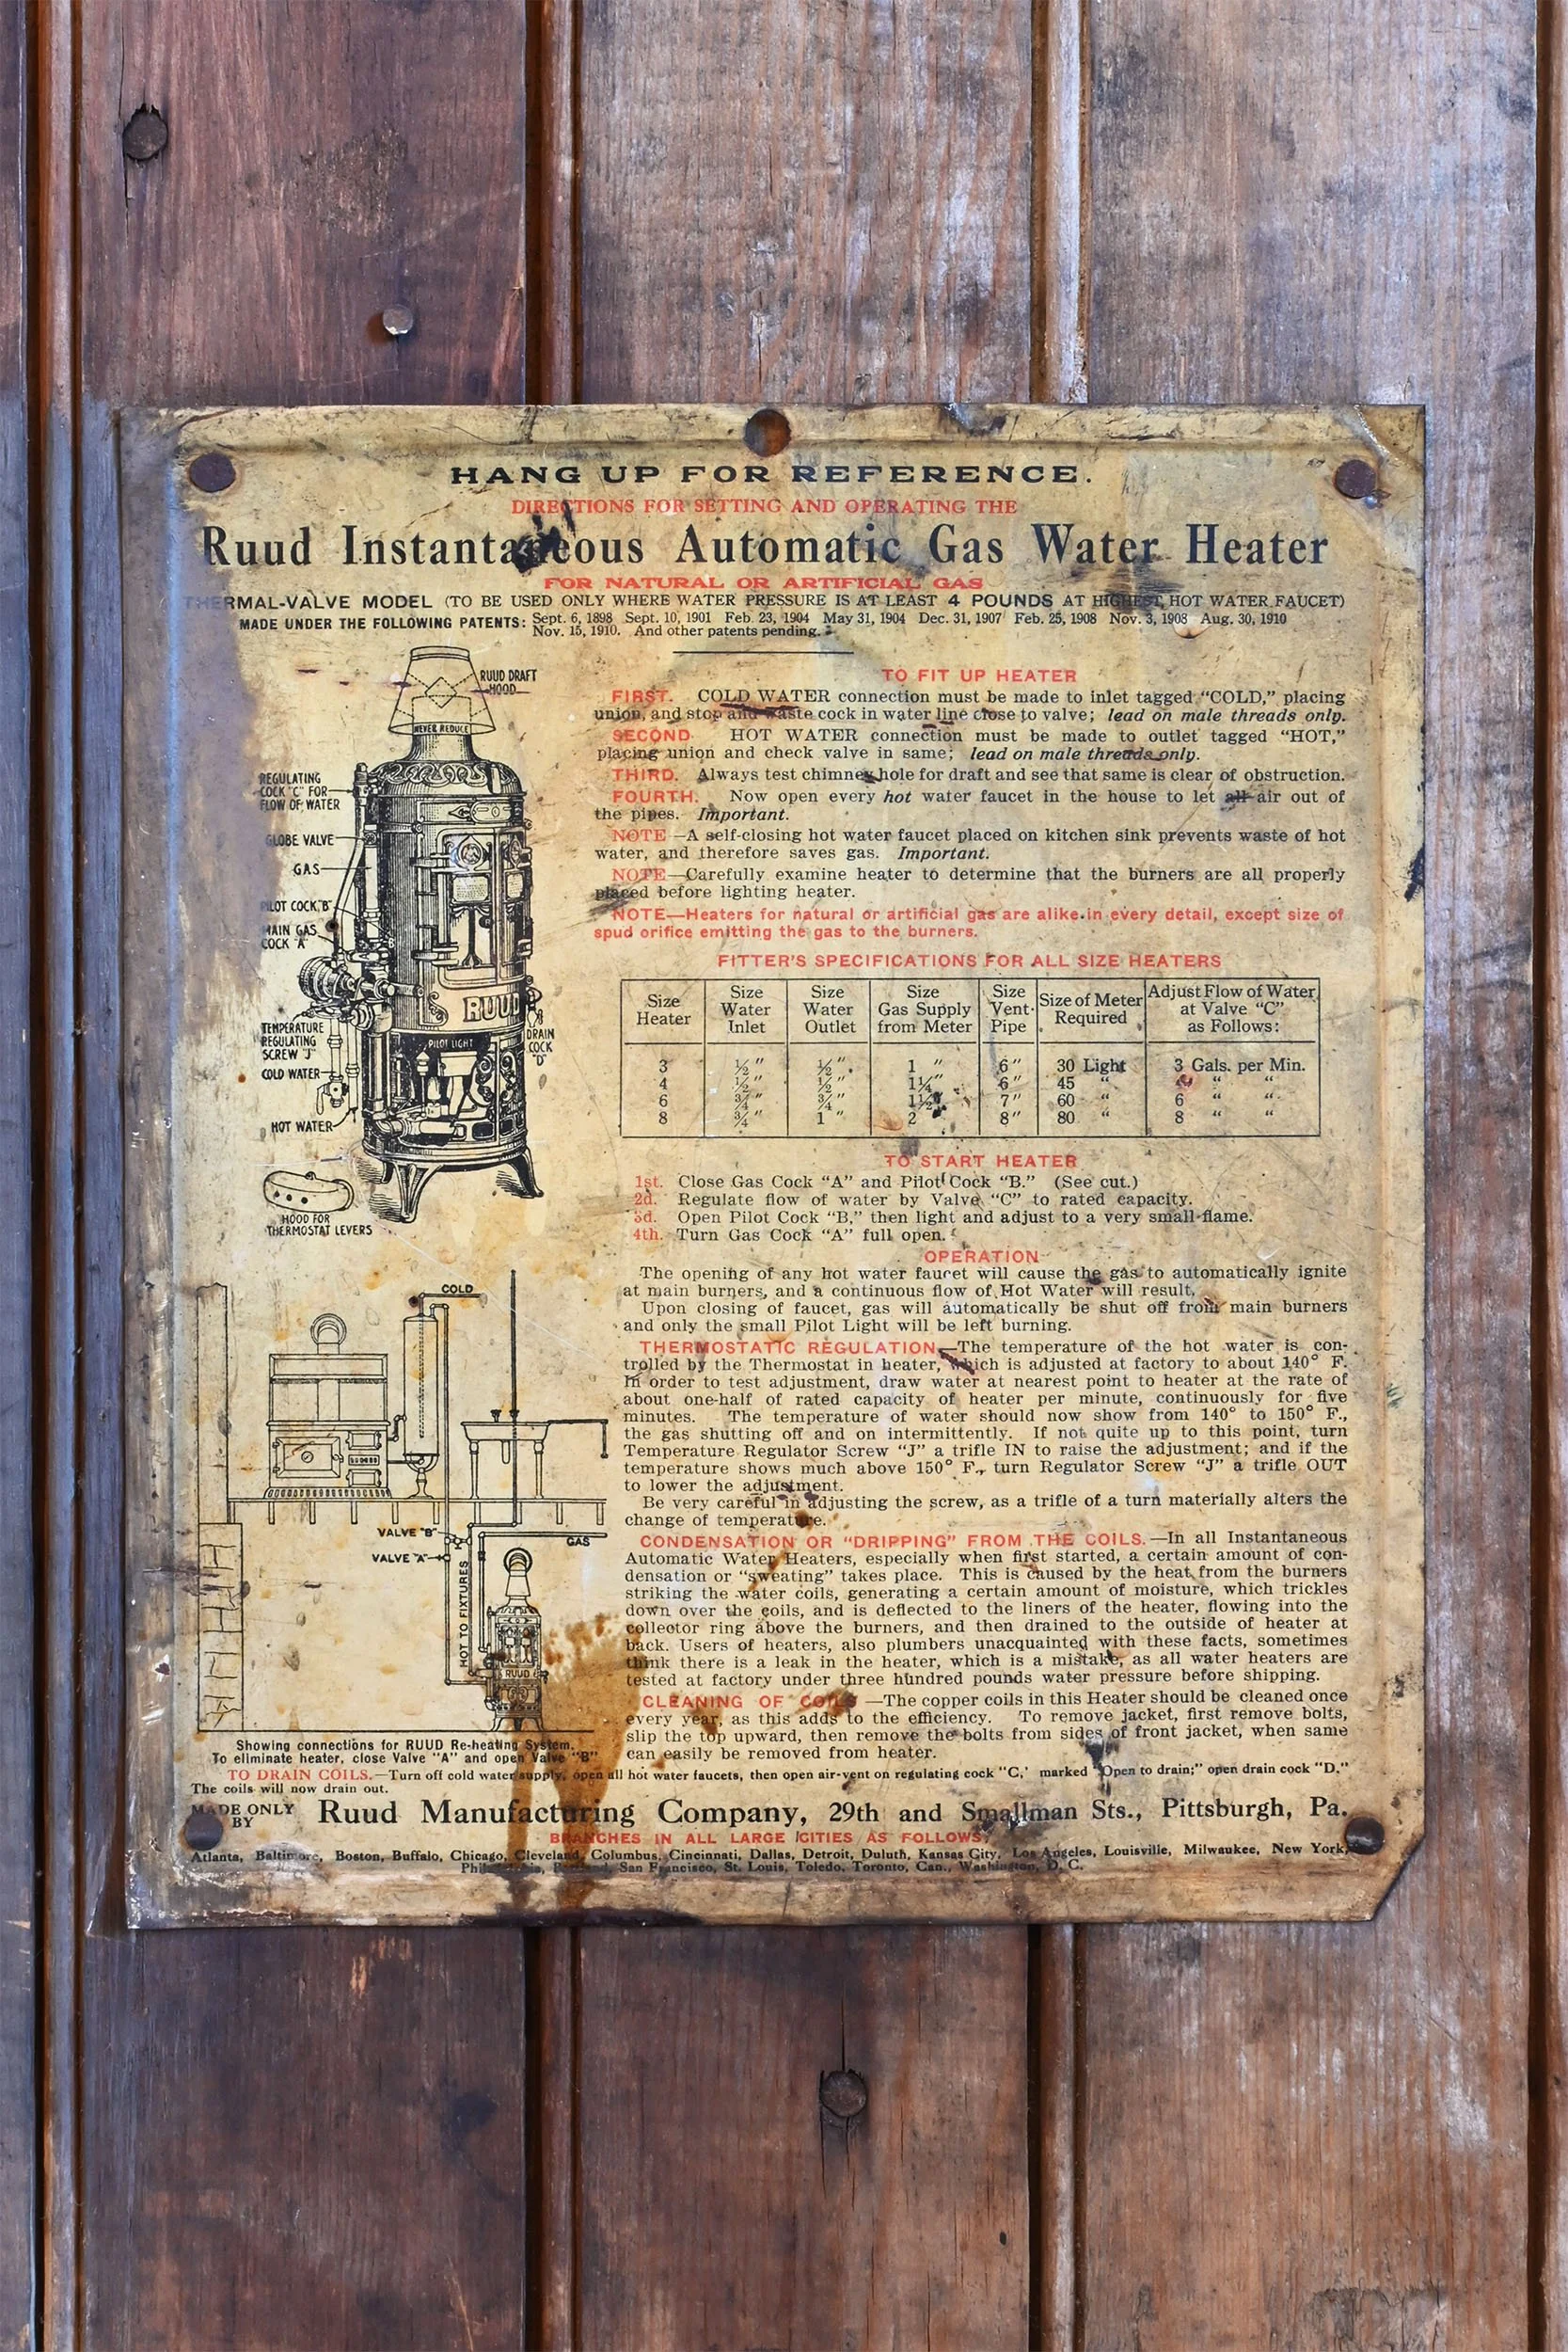 HANG UP FOR REFERENCE.
DIRECTIONS FOR SETTING AND OPERATING THE
Ruud Instantaneous Automatic Gas Water Heater
FOR NATURAL OR ARTIFICIAL GAS
THERMAL-VALVE MODEL (TO BE USED ONLY WHERE WATER PRESSURE IS AT LEAST 4 POUNDS AT HIGHEST HOT WATER FAUCET)
MADE UNDER THE FOLLOWING PATENTS: Sept. 6, 1898 Sept. 10, 1901 Feb. 23, 1904 May 31, 1904 Dec. 31, 1907 Feb. 25, 1908 Nov. 3, 1908 Aug. 30, 1910
Nov. 15, 1910. And other patents pending.
RUUD DRAFT
HOOD
NEVER REDUCE
REGULATING
COCK "C" FOR
FLOW OF WATER
GLOBE VALVE
GAS
PILOT COCK "B"
MAIN GAS
COCK "A"
RUUD
TEMPERATURE
REGULATING
SCREW "J"
PILOT LIGHT
DRAIN
COCK
"D"
COLD WATER
HOT WATER
HOOD FOR
THERMOSTAT LEVERS
TO FIT UP HEATER
FIRST. COLD WATER connection must be made to inlet tagged "COLD," placing
union, and stop and waste cock in water line close to valve; lead on male threads only.
SECOND HOT WATER connection must be made to outlet tagged "HOT,"
placing union and check valve in same; lead on male threads only.
THIRD. Always test chimney hole for draft and see that same is clear of obstruction.
FOURTH. Now open every hot water faucet in the house to let all air out of
the pipes. Important.
NOTE—A self-closing hot water faucet placed on kitchen sink prevents waste of hot
water, and therefore saves gas. Important.
NOTE—Carefully examine heater to determine that the burners are all properly
placed before lighting heater.
NOTE—Heaters for natural or artificial gas are alike in every detail, except size of
spud orifice emitting the gas to the burners.
FITTER'S SPECIFICATIONS FOR ALL SIZE HEATERS
Size Heater Size Water Inlet Size Water Outlet Size Gas Supply from Meter Size Vent Pipe Size of Meter Required Adjust Flow of Water at Valve "C" as Follows:
3 ½" ½" 1 " 6" 30 Light 3 Gals. per Min.
4 ½" ½" 1¼" 6" 45 " " "
6 ¾" ¾" 1½" 7" 60 " 6 " "
8 ¾" 1 " 2 8" 80 " 8 " "
TO START HEATER
1st. Close Gas Cock "A" and Pilot Cock "B." (See cut.)
2d. Regulate flow of water by Valve "C" to rated capacity.
3d. Open Pilot Cock "B," then light and adjust to a very small flame.
4th. Turn Gas Cock "A" full open.
OPERATION
The opening of any hot water faucet will cause the gas to automatically ignite
at main burners, and a continuous flow of Hot Water will result.
Upon closing of faucet, gas will automatically be shut off from main burners
and only the small Pilot Light will be left burning.
THERMOSTATIC REGULATION.—The temperature of the hot water is con-
trolled by the Thermostat in heater, which is adjusted at factory to about 140° F.
In order to test adjustment, draw water at nearest point to heater at the rate of
about one-half of rated capacity of heater per minute, continuously for five
minutes. The temperature of water should now show from 140° to 150° F.,
the gas shutting off and on intermittently. If not quite up to this point, turn
Temperature Regulator Screw "J" a trifle IN to raise the adjustment; and if the
temperature shows much above 150° F., turn Regulator Screw "J" a trifle OUT
to lower the adjustment.
Be very careful in adjusting the screw, as a trifle of a turn materially alters the
change of temperature.
CONDENSATION OR "DRIPPING" FROM THE COILS.—In all Instantaneous
Automatic Water Heaters, especially when first started, a certain amount of con-
densation or "sweating" takes place. This is caused by the heat from the burners
striking the water coils, generating a certain amount of moisture, which trickles
down over the coils, and is deflected to the liners of the heater, flowing into the
collector ring above the burners, and then drained to the outside of heater at
back. Users of heaters, also plumbers unacquainted with these facts, sometimes
think there is a leak in the heater, which is a mistake, as all water heaters are
tested at factory under three hundred pounds water pressure before shipping.
CLEANING OF COILS—The copper coils in this Heater should be cleaned once
every year, as this adds to the efficiency. To remove jacket, first remove bolts,
slip the top upward, then remove the bolts from sides of front jacket, when same
can easily be removed from heater.
COLD
VALVE "B"
GAS
VALVE "A"
HOT TO FIXTURES
RUUD
Showing connections for RUUD Re-heating System.
To eliminate heater, close Valve "A" and open Valve "B"
TO DRAIN COILS.—Turn off cold water supply, open all hot water faucets, then open air-vent on regulating cock "C," marked "Open to drain;" open drain cock "D."
The coils will now drain out.
MADE ONLY
BY
Ruud Manufacturing Company, 29th and Smallman Sts., Pittsburgh, Pa.
BRANCHES IN ALL LARGE CITIES AS FOLLOWS:
Atlanta, Baltimore, Boston, Buffalo, Chicago, Cleveland, Columbus, Cincinnati, Dallas, Detroit, Duluth, Kansas City, Los Angeles, Louisville, Milwaukee, New York,
Philadelphia, Portland, San Francisco, St. Louis, Toledo, Toronto, Can., Washington, D. C.